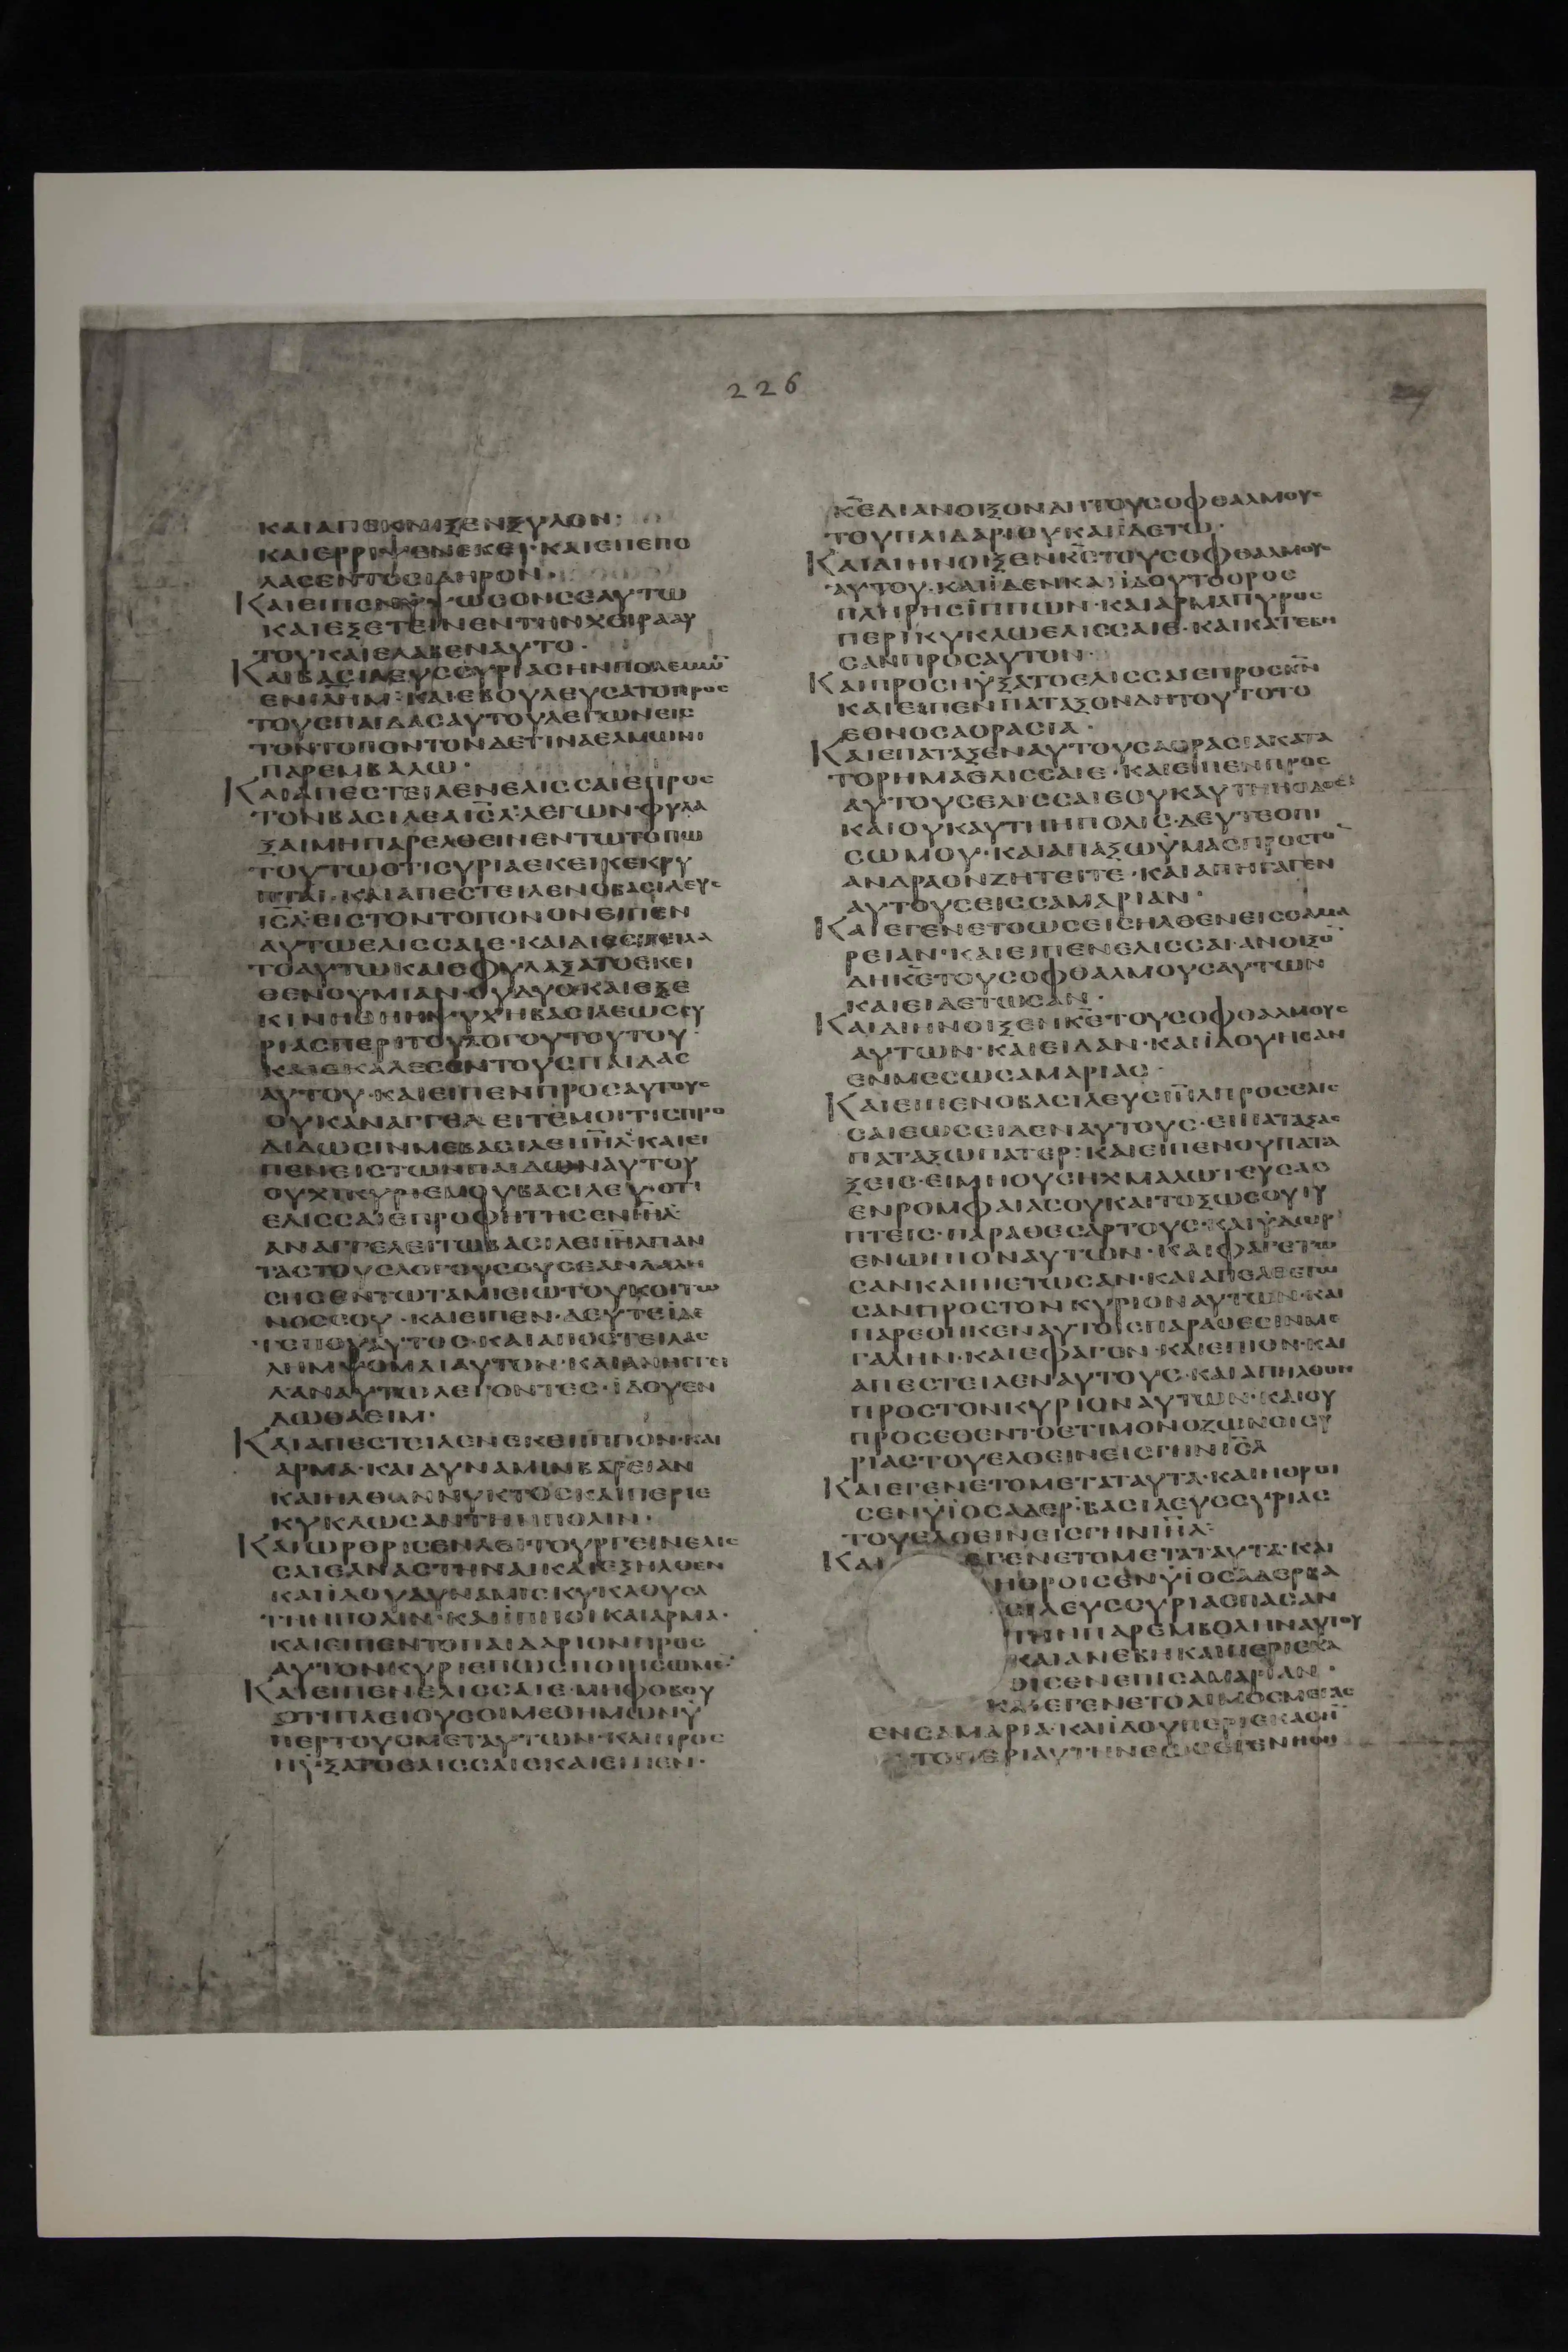 226
ΚΑΙΑΠΕΚΝΙΞΕΝΞΥΛΟΝ·
ΚΑΙΕΡΡΙΨΕΝΕΚΕΙ·ΚΑΙΕΠΕΠΟ
ΛΑΣΕΝΤΟΣΙΔΗΡΟΝ·
ΚΑΙΕΙΠΕΝ ΥΨΩΣΟΝΣΕΑΥΤΩ
ΚΑΙΕΞΕΤΕΙΝΕΝΤΗΝΧΕΙΡΑΑΥ
ΤΟΥΚΑΙΕΛΑΒΕΝΑΥΤΟ·
ΚΑΙΒΑΣΙΛΕΥΣΣΥΡΙΑΣΗΝΠΟΛΕΜΩ̅
ΕΝΙΗ̅Μ·ΚΑΙΕΒΟΥΛΕΥΣΑΤΟΠΡΟΣ
ΤΟΥΣΠΑΙΔΑΣΑΥΤΟΥΛΕΓΩΝΕΙΣ
ΤΟΝΤΟΠΟΝΤΟΝΔΕΤΙΝΑΕΛΜΩΝΙ
ΠΑΡΕΜΒΑΛΩ·
ΚΑΙΑΠΕΣΤΕΙΛΕΝΕΛΙΣΣΑΙΕΠΡΟΣ
ΤΟΝΒΑΣΙΛΕΑΙΣ̅Λ·ΛΕΓΩΝΦΥΛΑ
ΞΑΙΜΗΠΑΡΕΛΘΕΙΝΕΝΤΩΤΟΠΩ
ΤΟΥΤΩΟΤΙΣΥΡΙΑΕΚΕΙΚΕΚΡΥ
ΠΤΑΙ·ΚΑΙΑΠΕΣΤΕΙΛΕΝΟΒΑΣΙΛΕΥΣ
ΙΣ̅Λ·ΕΙΣΤΟΝΤΟΠΟΝΟΝΕΙΠΕΝ
ΑΥΤΩΕΛΙΣΣΑΙΕ·ΚΑΙΔΙΕΣΤΕΙΛΑ
ΤΟΑΥΤΩΚΑΙΕΦΥΛΑΞΑΤΟΕΚΕΙ
ΘΕΝΟΥΜΙΑΝ·ΟΥΔΥΟ·ΚΑΙΕΞΕ
ΚΙΝΗΘΗΗΨΥΧΗΒΑΣΙΛΕΩΣΣΥ
ΡΙΑΣΠΕΡΙΤΟΥΛΟΓΟΥΤΟΥΤΟΥ·
ΚΑΙΕΚΑΛΕΣΕΝΤΟΥΣΠΑΙΔΑΣ
ΑΥΤΟΥ·ΚΑΙΕΙΠΕΝΠΡΟΣΑΥΤΟΥΣ
ΟΥΚΑΝΑΓΓΕΛΕΙΤΕΜΟΙΤΙΣΠΡΟ
ΔΙΔΩΣΙΝΜΕΒΑΣΙΛΕΙΙΗ̅Λ·ΚΑΙΕΙ
ΠΕΝΕΙΣΤΩΝΠΑΙΔΩΝΑΥΤΟΥ
ΟΥΧΙΚΥΡΙΕΜΟΥΒΑΣΙΛΕΥ·ΟΤΙ
ΕΛΙΣΣΑΙΕΠΡΟΦΗΤΗΣΕΝΙΗ̅Λ·
ΑΝΑΓΓΕΛΕΙΤΩΒΑΣΙΛΕΙΙΗ̅ΛΠΑΝ
ΤΑΣΤΟΥΣΛΟΓΟΥΣΟΥΣΕΑΝΛΑΛΗ
ΣΗΣΕΝΤΩΤΑΜΙΕΙΩΤΟΥΚΟΙΤΩ
ΝΟΣΣΟΥ·ΚΑΙΕΙΠΕΝ·ΔΕΥΤΕΙΔΕ
ΤΕΠΟΥΟΥΤΟΣ·ΚΑΙΑΠΟΣΤΕΙΛΑΣ
ΛΗΜΨΟΜΑΙΑΥΤΟΝ·ΚΑΙΑΝΗΓΓΕΙ
ΛΑΝΑΥΤΩΛΕΓΟΝΤΕΣ·ΪΔΟΥΕΝ
ΔΩΘΑΕΙΜ·
ΚΑΙΑΠΕΣΤΕΙΛΕΝΕΚΕΙΙΠΠΟΝ·ΚΑΙ
ΑΡΜΑ·ΚΑΙΔΥΝΑΜΙΝΒΑΡΕΙΑΝ
ΚΑΙΗΛΘΑΝΝΥΚΤΟΣΚΑΙΠΕΡΙΕ
ΚΥΚΛΩΣΑΝΤΗΝΠΟΛΙΝ·
ΚΑΙΩΡΟΡΙΣΕΝΛΕΙΤΟΥΡΓΕΙΝΕΛΙΣ
ΣΑΙΕΑΝΑΣΤΗΝΑΙΚΑΙΕΞΗΛΘΕΝ
ΚΑΙΪΔΟΥΔΥΝΑΜΙΣΚΥΚΛΟΥΣΑ
ΤΗΝΠΟΛΙΝ·ΚΑΙΪΠΠΟΙΚΑΙΑΡΜΑ·
ΚΑΙΕΙΠΕΝΤΟΠΑΙΔΑΡΙΟΝΠΡΟΣ
ΑΥΤΟΝΚΥΡΙΕΠΩΣΠΟΙΗΣΩΜΕ̅·
ΚΑΙΕΙΠΕΝΕΛΙΣΣΑΙΕ·ΜΗΦΟΒΟΥ
ΟΤΙΠΛΕΙΟΥΣΟΙΜΕΘΗΜΩΝΫ
ΠΕΡΤΟΥΣΜΕΤΑΥΤΩΝ·ΚΑΙΠΡΟΣ
ΗΥΞΑΤΟΕΛΙΣΣΑΙΕΚΑΙΕΙΠΕΝ·
Κ̅ΕΔΙΑΝΟΙΞΟΝΔΗΤΟΥΣΟΦΘΑΛΜΟΥΣ
ΤΟΥΠΑΙΔΑΡΙΟΥΚΑΙΪΔΕΤΩ·
ΚΑΙΔΙΗΝΟΙΞΕΝΚ̅ΣΤΟΥΣΟΦΘΑΛΜΟΥΣ
ΑΥΤΟΥ·ΚΑΙΪΔΕΝΚΑΙΪΔΟΥΤΟΟΡΟΣ
ΠΛΗΡΗΣΪΠΠΩΝ·ΚΑΙΑΡΜΑΠΥΡΟΣ
ΠΕΡΙΚΥΚΛΩΕΛΙΣΣΑΙΕ·ΚΑΙΚΑΤΕΒΗ
ΣΑΝΠΡΟΣΑΥΤΟΝ·
ΚΑΙΠΡΟΣΗΥΞΑΤΟΕΛΙΣΣΑΙΕΠΡΟΣΚ̅Ν
ΚΑΙΕΙΠΕΝΠΑΤΑΞΟΝΔΗΤΟΥΤΟΤΟ
ΕΘΝΟΣΑΟΡΑΣΙΑ·
ΚΑΙΕΠΑΤΑΞΕΝΑΥΤΟΥΣΑΟΡΑΣΙΑΚΑΤΑ
ΤΟΡΗΜΑΕΛΙΣΣΑΙΕ·ΚΑΙΕΙΠΕΝΠΡΟΣ
ΑΥΤΟΥΣΕΛΙΣΣΑΙΕΟΥΧΑΥΤΗΗΟΔΟΣ
ΚΑΙΟΥΚΑΥΤΗΗΠΟΛΙΣ·ΔΕΥΤΕΟΠΙ
ΣΩΜΟΥ·ΚΑΙΑΠΑΞΩΫΜΑΣΠΡΟΣΤΟ̅
ΑΝΔΡΑΟΝΖΗΤΕΙΤΕ·ΚΑΙΑΠΗΓΑΓΕΝ
ΑΥΤΟΥΣΕΙΣΣΑΜΑΡΙΑΝ·
ΚΑΙΕΓΕΝΕΤΟΩΣΕΙΣΗΛΘΕΝΕΙΣΣΑΜΑ
ΡΕΙΑΝ·ΚΑΙΕΙΠΕΝΕΛΙΣΣΑΙ·ΑΝΟΙΞΟ̅
ΔΗΚ̅ΕΤΟΥΣΟΦΘΑΛΜΟΥΣΑΥΤΩΝ
ΚΑΙΕΙΔΕΤΩΣΑΝ·
ΚΑΙΔΙΗΝΟΙΞΕΝΚ̅ΣΤΟΥΣΟΦΘΑΛΜΟΥΣ
ΑΥΤΩΝ·ΚΑΙΕΙΔΑΝ·ΚΑΙΪΔΟΥΗΣΑΝ
ΕΝΜΕΣΩΣΑΜΑΡΙΑΣ·
ΚΑΙΕΙΠΕΝΟΒΑΣΙΛΕΥΣΙΗ̅ΛΠΡΟΣΕΛΙΣ
ΣΑΙΕΩΣΕΙΔΕΝΑΥΤΟΥΣ·ΕΙΠΑΤΑΞΑΣ
ΠΑΤΑΞΩΠΑΤΕΡ·ΚΑΙΕΙΠΕΝΟΥΠΑΤΑ
ΞΕΙΣ·ΕΙΜΗΟΥΣΗΧΜΑΛΩΤΕΥΣΑΣ
ΕΝΡΟΜΦΑΙΑΣΟΥΚΑΙΤΟΞΩΣΟΥΤΥ
ΠΤΕΙΣ·ΠΑΡΑΘΕΣΑΡΤΟΥΣ·ΚΑΙΫΔΩΡ
ΕΝΩΠΙΟΝΑΥΤΩΝ·ΚΑΙΦΑΓΕΤΩ
ΣΑΝΚΑΙΠΙΕΤΩΣΑΝ·ΚΑΙΑΠΕΛΘΕΤΩ
ΣΑΝΠΡΟΣΤΟΝΚΥΡΙΟΝΑΥΤΩΝ·ΚΑΙ
ΠΑΡΕΘΗΚΕΝΑΥΤΟΙΣΠΑΡΑΘΕΣΙΝΜΕ
ΓΑΛΗΝ·ΚΑΙΕΦΑΓΟΝ·ΚΑΙΕΠΙΟΝ·ΚΑΙ
ΑΠΕΣΤΕΙΛΕΝΑΥΤΟΥΣ·ΚΑΙΑΠΗΛΘΟΝ
ΠΡΟΣΤΟΝΚΥΡΙΟΝΑΥΤΩΝ·ΚΑΙΟΥ
ΠΡΟΣΕΘΕΝΤΟΕΤΙΜΟΝΟΖΩΝΟΙΣΥ
ΡΙΑΣΤΟΥΕΛΘΕΙΝΕΙΣΓΗΝΙΣ̅Λ
ΚΑΙΕΓΕΝΕΤΟΜΕΤΑΤΑΥΤΑ·ΚΑΙΗΘΡΟΙ
ΣΕΝΫΙΟΣΑΔΕΡ·ΒΑΣΙΛΕΥΣΣΥΡΙΑΣ
ΤΟΥΕΛΘΕΙΝΕΙΣΓΗΝΙΗ̅Λ·
ΚΑΙ ΕΓΕΝΕΤΟΜΕΤΑΤΑΥΤΑ·ΚΑΙ
ΗΘΡΟΙΣΕΝΫΙΟΣΑΔΕΡΒΑ
ΣΙΛΕΥΣΣΥΡΙΑΣΠΑΣΑΝ
ΤΗΝΠΑΡΕΜΒΟΛΗΝΑΥΤΟΥ
ΚΑΙΑΝΕΒΗΚΑΙΠΕΡΙΕΧΑ
ΡΙΣΕΝΕΠΙΣΑΜΑΡΙΑΝ·
ΚΑΙΕΓΕΝΕΤΟΛΙΜΟΣΜΕΓΑΣ
ΕΝΣΑΜΑΡΙΑ·ΚΑΙΪΔΟΥΠΕΡΙΕΚΑΘΗ̅
ΤΟΠΕΡΙΑΥΤΗΝΕΩΣΕΓΕΝΗΘΗ